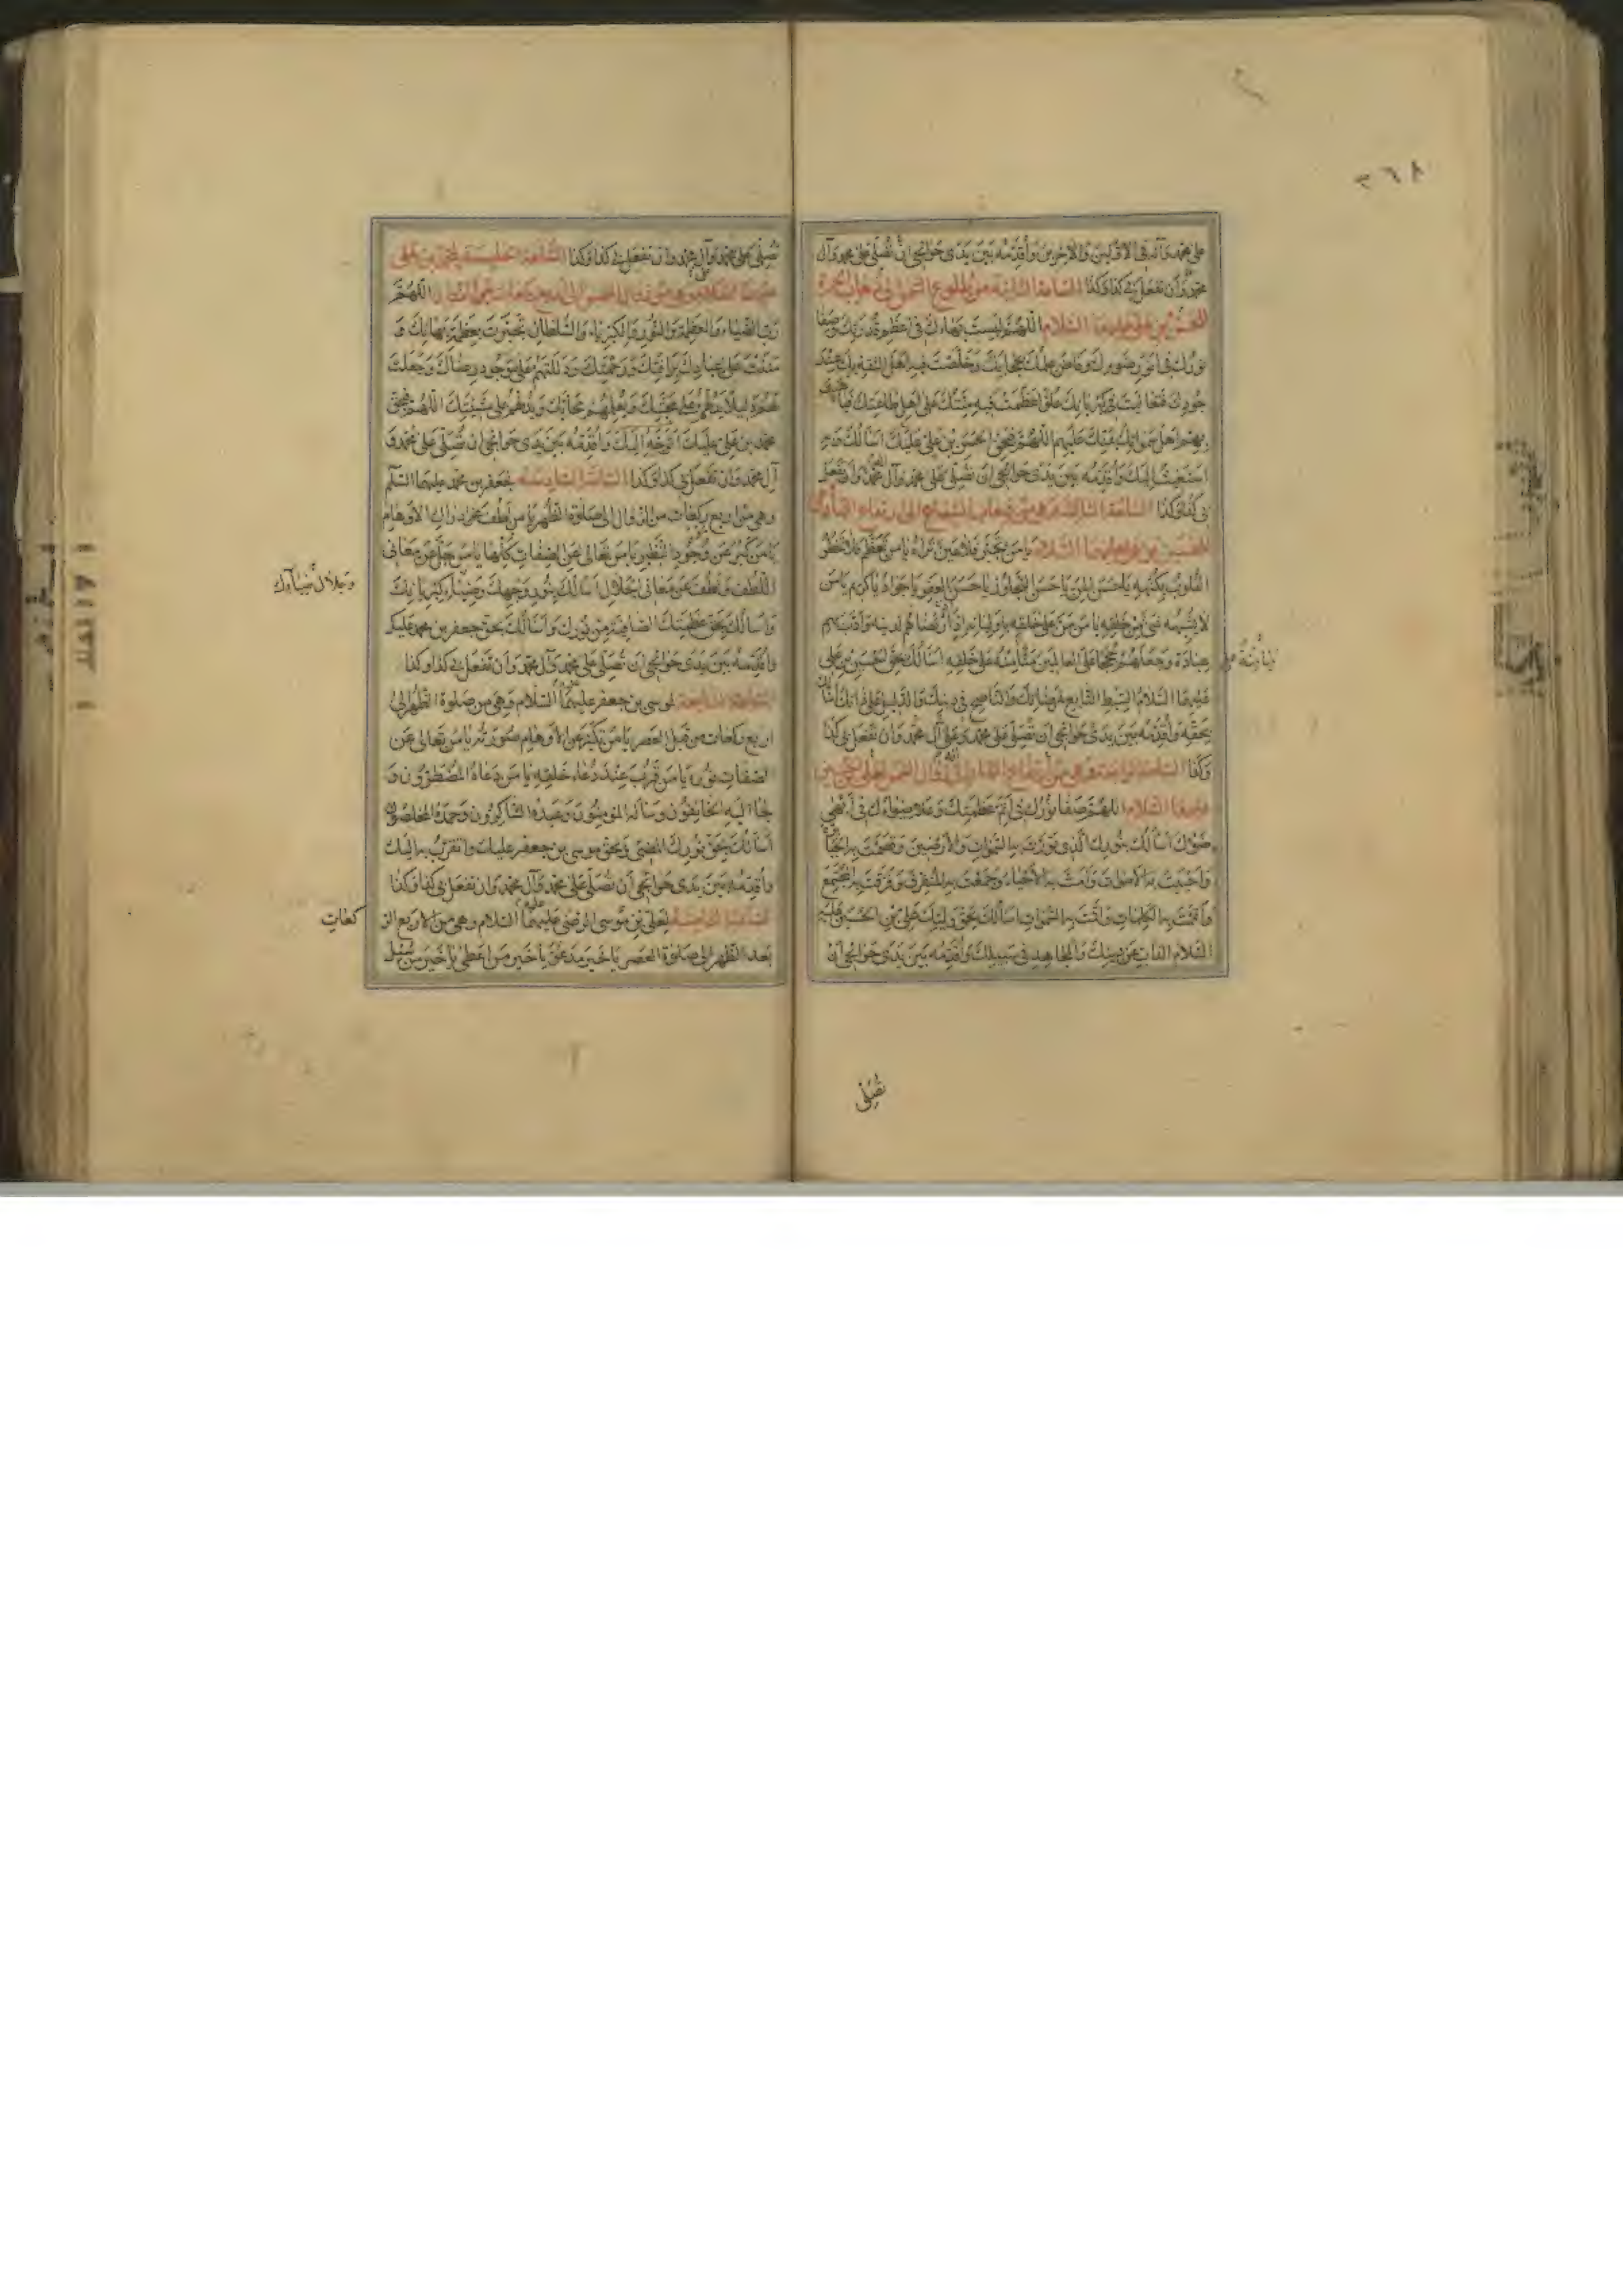 ٣٦٨
على محمد وآله في الاولين والآخرين وأقدمه بين يدي حوائجي ان تصلي على محمد وآل
محمد وأن تفعل بي كذا وكذا الساعة الثانية من طلوع الشمس الى ذهاب الحمرة
للحسن بن علي عليهما السلام اللهم لبست بهاءك في اعظم قدرتك وصفا
نورك في انور ضوءك وفاض علمك حجابك وخلصت فيه اهل الثقة بك عند
جودك فتعاليت في كبريائك علوا عظمت فيه منتك على اهل طاعتك فباهيت
بهم اهل سمواتك بمنتك عليهم اللهم فبحق الحسن بن علي عليك اسألك وبه
استغيث اليك وأقدمه بين يدي حوائجي ان تصلي على محمد وآل محمد وان تفعل
بي كذا وكذا الساعة الثالثة وهي من ذهاب الشعاع الى ارتفاع النهار
للحسين بن علي عليهما السلام يا من تجبر فلا عين تراه يا من تعظم فلا تخطر
القلوب بكنهه يا حسن المن يا حسن التجاوز يا حسن العفو يا جواد يا كريم يا من
لا يشبهه شيء من خلقه يا من من على خلقه باوليائه اذ ارتضاهم لدينه وأدب بهم
عباده وجعلهم حججا على العالمين منا منه على خلقه اسألك بحق الحسين بن علي
عليهما السلام السبط التابع لمرضاتك والناصح في دينك والدليل على ذاتك اسألك
بحقه وأقدمه بين يدي حوائجي ان تصلي على محمد وعلى آل محمد وأن تفعل بي كذا
وكذا الساعة الرابعة وهي من ارتفاع النهار الى زوال الشمس لعلي بن الحسين
عليهما السلام اللهم صفا نورك في أتم عظمتك وعلا ضياءك في أبهى
ضوءك اسألك بنورك الذي نورت به السموات والأرضين وقصمت به الجبابرة
وأحييت به الأموات وأمت به الأحياء وجمعت به المتفرق وفرقت به المجتمع
وأتممت به الكلمات وأقمت به السموات اسألك بحق وليك علي بن الحسين عليه
السلام الذاب عن دينك والمجاهد في سبيلك وأقدمه بين يدي حوائجي أن
تصلي
تصلي على محمد وآل محمد وان تفعل بي كذا وكذا الساعة الخامسة لمحمد بن علي
عليهما السلام وهي من زوال الشمس الى اربع ركعات من الزوال اللهم
رب الضياء والعظمة والنور والكبرياء والسلطان تجبرت بعظمة بهائك و
مننت على عبادك برأفتك ورحمتك ودللتهم على موجود رضاك وجعلت
لهم دليلا يدلهم على محبتك ويعلمهم محابك ويدلهم على مشيتك اللهم فبحق
محمد بن علي عليك اتوجه اليك وأقدمه بين يدي حوائجي ان تصلي على محمد و
آل محمد وان تفعل بي كذا وكذا الساعة السادسة لجعفر بن محمد عليهما السلم
وهي من اربع ركعات من الزوال الى صلوة الظهر يا من لطف عن ادراك الاوهام
يا من كبر عن موجود البصر يا من تعالى عن الصفات كلها يا من جل عن معاني
اللطف ولطف عن معاني الجلال اسألك بنور وجهك وضياء كبريائك
وجلال ضياءك
وأسألك بحق عظمتك الصافية من نورك وأسألك بحق جعفر بن محمد عليك
وأقدمه بين يدي حوائجي ان تصلي على محمد وآل محمد وأن تفعل بي كذا وكذا
الساعة السابعة لموسى بن جعفر عليهما السلام وهي من صلوة الظهر الى
اربع ركعات من قبل العصر يا من تكبر عن الاوهام صورته يا من تعالى عن
الصفات نوره يا من قرب عند دعاء خلقه يا من دعاه المضطرون و
لجأ اليه الخائفون وسأله المؤمنون وعبده الشاكرون وحمده المخلصون
أسألك بحق نورك المضيء وبحق موسى بن جعفر عليك وأتقرب به اليك
وأقدمه بين يدي حوائجي أن تصلي على محمد وآل محمد وان تفعل بي كذا وكذا
الساعة الثامنة لعلي بن موسى الرضى عليهما السلام وهي من الاربع الر
كعات
بعد الظهر الى صلوة العصر يا خير مدعو يا خير من اعطى يا خير من سئل